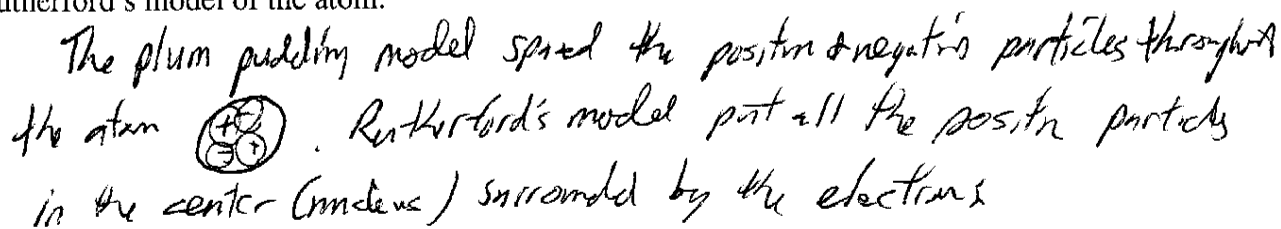 utherford's model of the atom.
The plum pudding model spread the positive & negative particles throughout
the atom + - - + . Rutherford's model put all the positive particles
in the center (nucleus) surrounded by the electrons